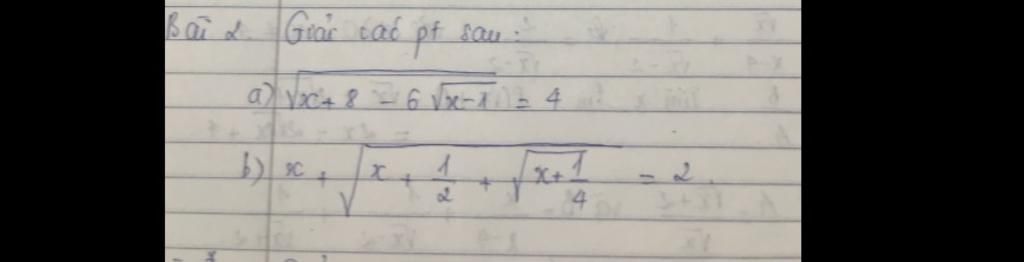 Bài 2 Giải các pt sau:
a) √(x + 8 - 6√(x-1)) = 4
b) x + √(x + 1/2 + √(x + 1/4)) = 2.